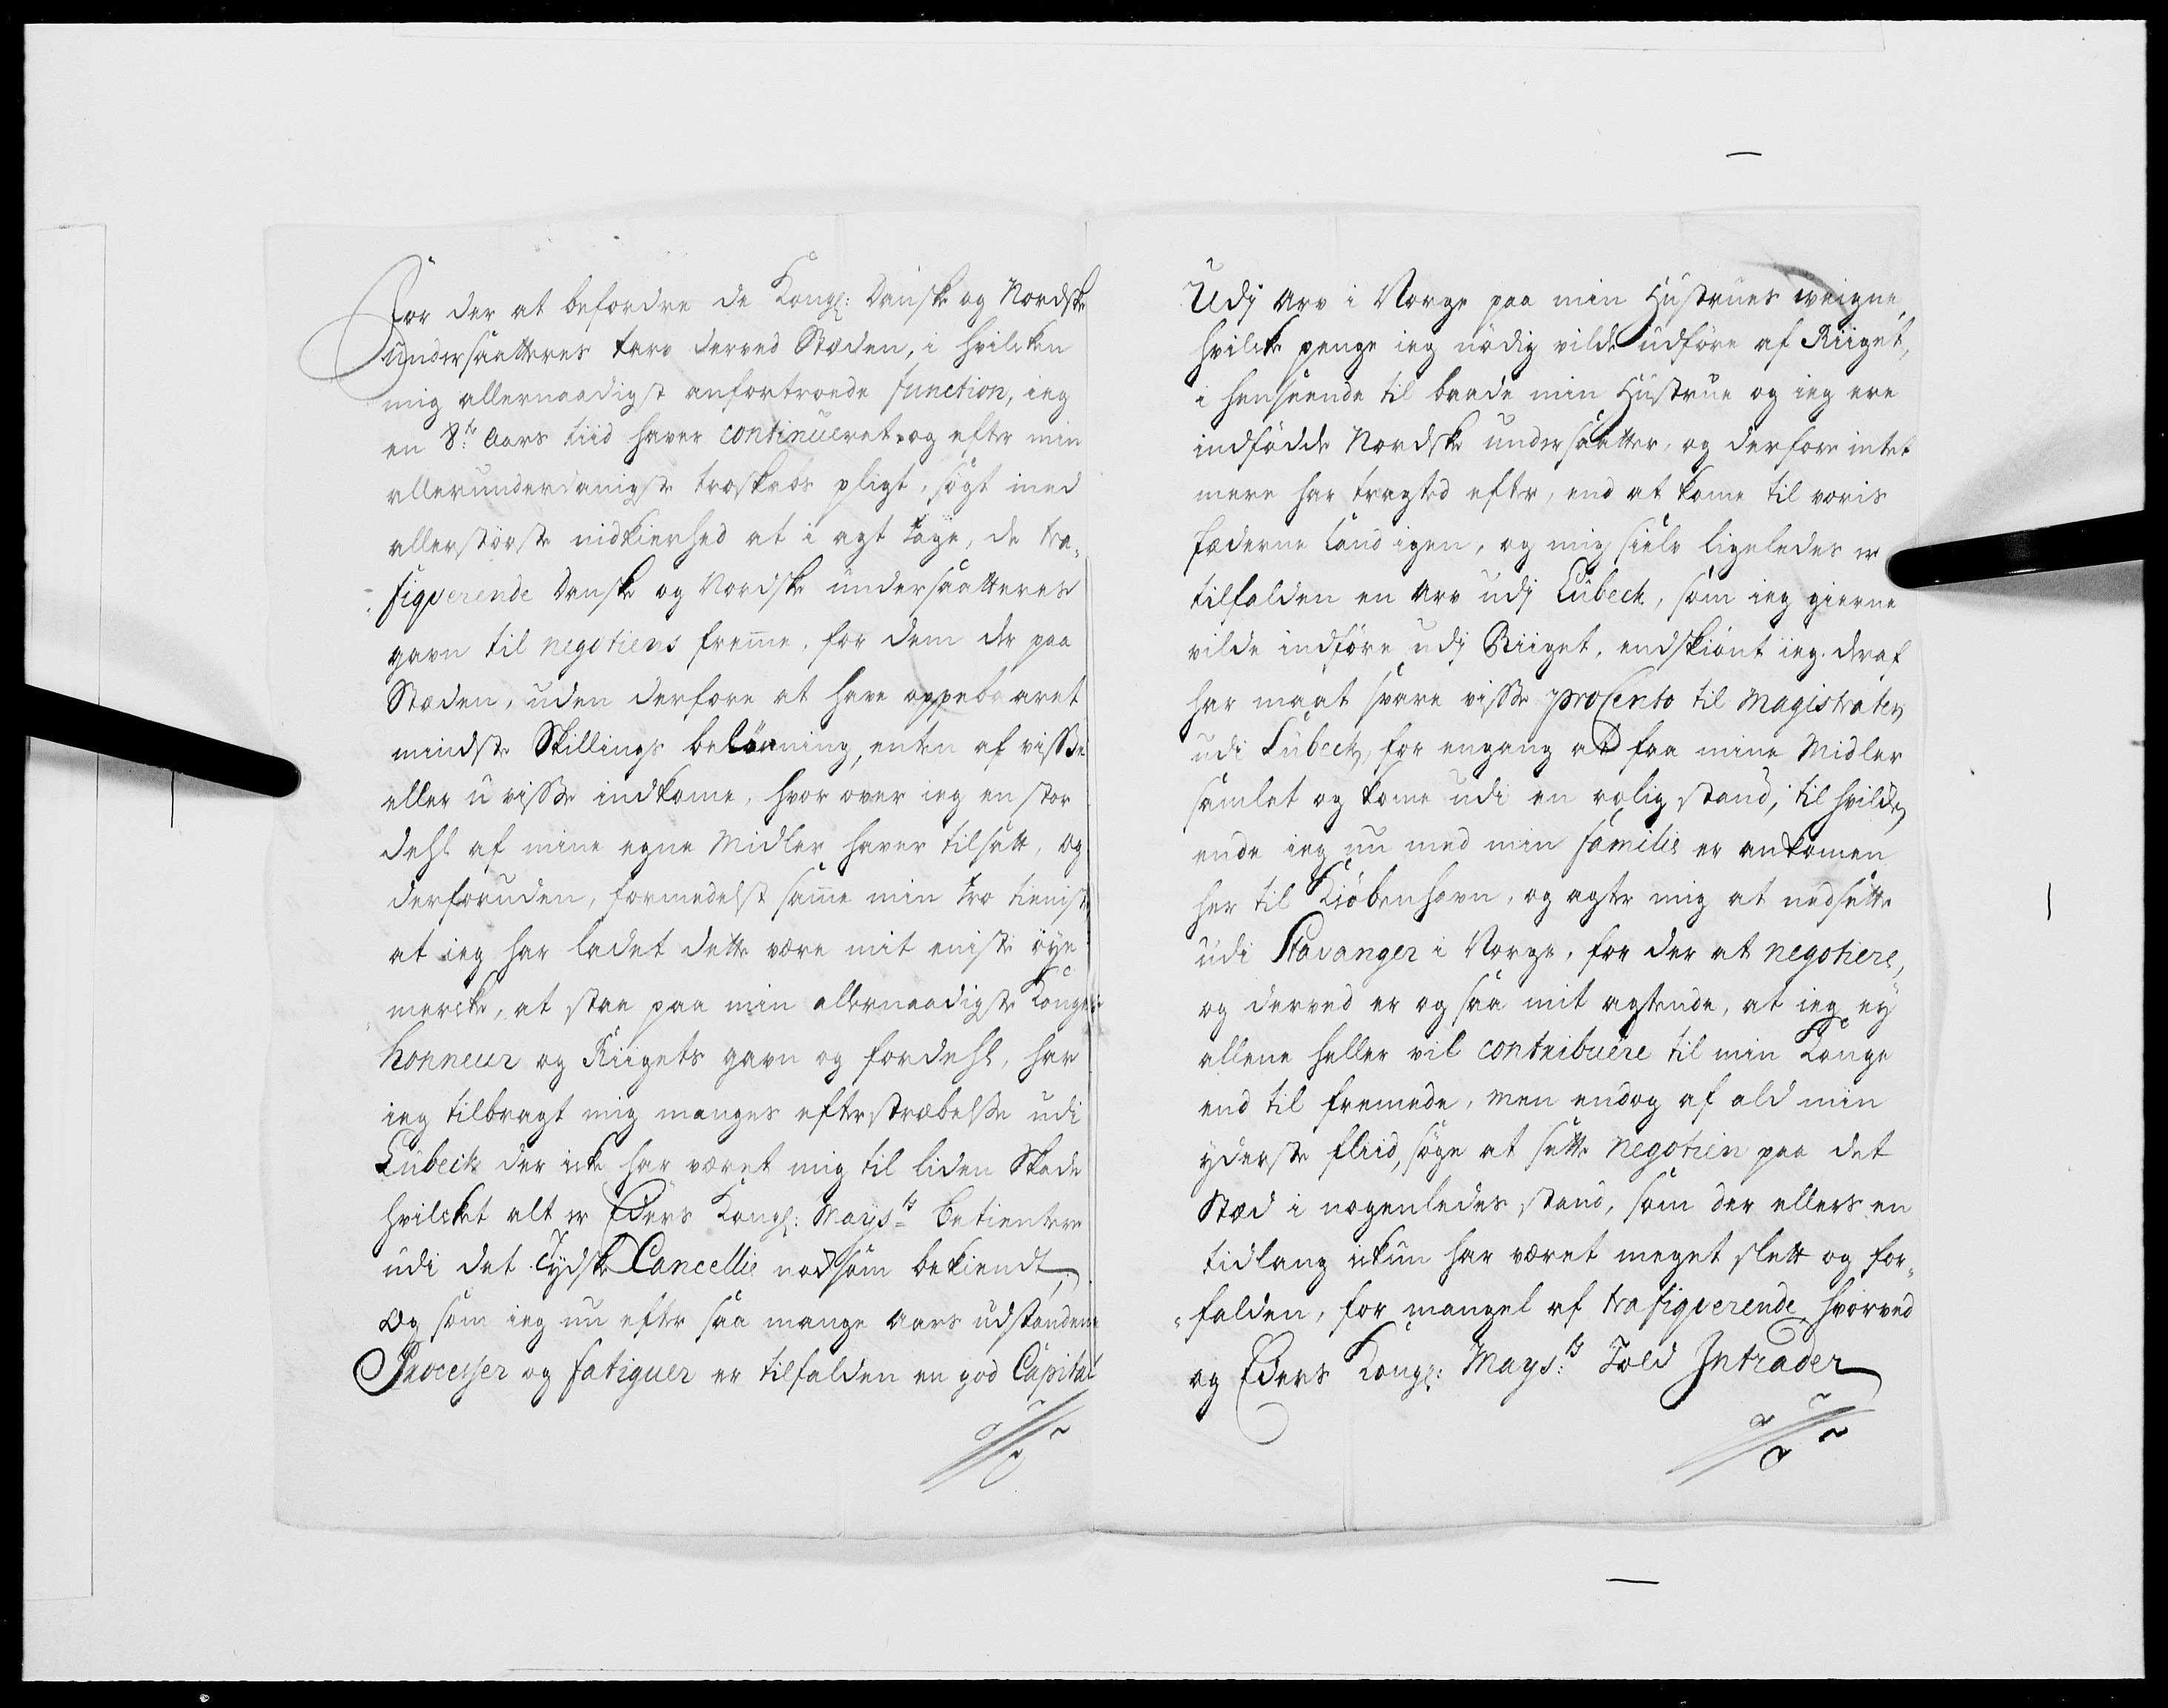 For der at befordre de Kongl: Danske og Nordske
undersaatteres tarv derved Stæden, i hvilcken
mig allernaadigst anfortroede function, ieg
en 8:te Aars tiid haver continueret og efter min
allerunderdanigste troskabs pligt, søgt med
allerstørste nidkierhed at i agt tage, de tra-
figverende Danske og Nordske undersaatteres
gavn til negotiens fremme, for dem der paa
Stæden, uden derfore at have oppebaaret
mindste Skillings belønning, enten af visse
eller u visse indkome, hvor over ieg en stor
dehl af mine egne Midler haver tilsatt, og
derforuden, formedelst samme min tro tieniste
at ieg har ladet dette være mit eniste øye
mercke, at staa paa min allernaadigste Konges
honneur og Riigets gavn og fordehl, har
ieg tilbragt mig manges efterstræbelse udi
Lübeck der icke har været mig til liden Skade
hvilcket alt er Eders Kongl: Mays:ts betientere
udi det Tydske Cancellie nocksom bekiendt,
Og som ieg nu efter saa mange Aars udstandene
Processer og fatiguer er tilfalden en god Capital
Udj Arv i Norge paa min Hustrues weigne,
hvilcke penge ieg nødig vilde udføre af Riiget,
i henseende til baade min Hustrue og ieg ere
indfødde Nordske undersaatter, og derfore intet
mere har tragted efter, end at kome til voris
fæderne Land igen, og mig sielv ligeledes er
tilfalden en Arv udj Lübeck, som ieg gierne
vilde indføre udj Riiget, endskiønt ieg deraf
har maat svare visse procento til Magistraten
udi Lübeck, for engang at faa mine Midler
samlet og kome udi en rolig stand, til hvilcken
ende ieg nu med min familie er ankomen
her til Kiøbenhavn, og agter mig at nedsette
udi Stavanger i Norge, for der at negotiere,
og derved er og saa mit agtende, at ieg ey
allene heller vil contribuere til min Konge
end til fremede, men endog af ald min
yderste fliid, søge at sette negotien paa det
Stæd i nogenledes stand, som der ellers en
tidlang ickun har været meget slett og for-
falden, for mangel af trafigverende, hvorved
og Eders Kongl: Mays:ts Told Intrader